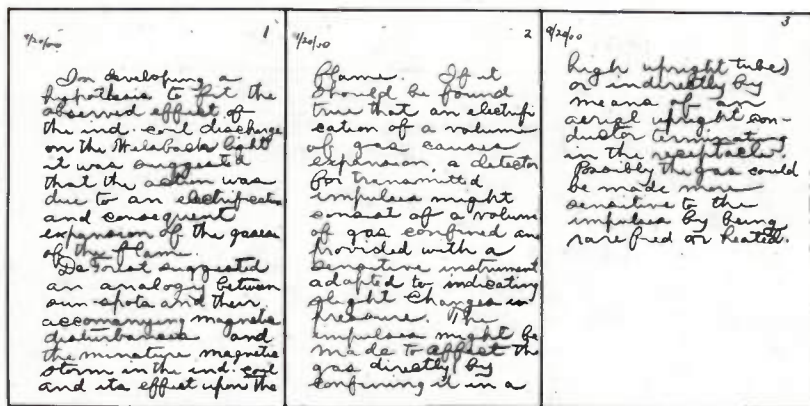 9/20/00
1
In developing a
hypothesis to fit the
observed effect of
the ind. coil discharge
on the Welsback light
it was suggested
that the action was
due to an electrification
and consequent
expansion of the gases
of the flame.
De Forest suggested
an analogy between
sun-spots and their
accomanying magnetic
disturbances and
the minature magnetic
storm in the ind. coil
and its effect upon the
9/20/00
2
flame. If it
should be found
true that an electrifi
cation of a volume
of gas causes
expansion, a detector
for transmitted
impulses might
consist of a volume
of gas confined and
provided with a
sensitive instrument
adapted to indicating
slight changes in
pressure. The
impulses might be
made to affect the
gas directly by
confining it in a
9/20/00
3
high upright tube)
or indirectly by
means of an
aerial upright con-
ductor terminating
in the receptacle.
Possibly the gas could
be made more
sensitive to the
impulses by being
rarefied or heated.